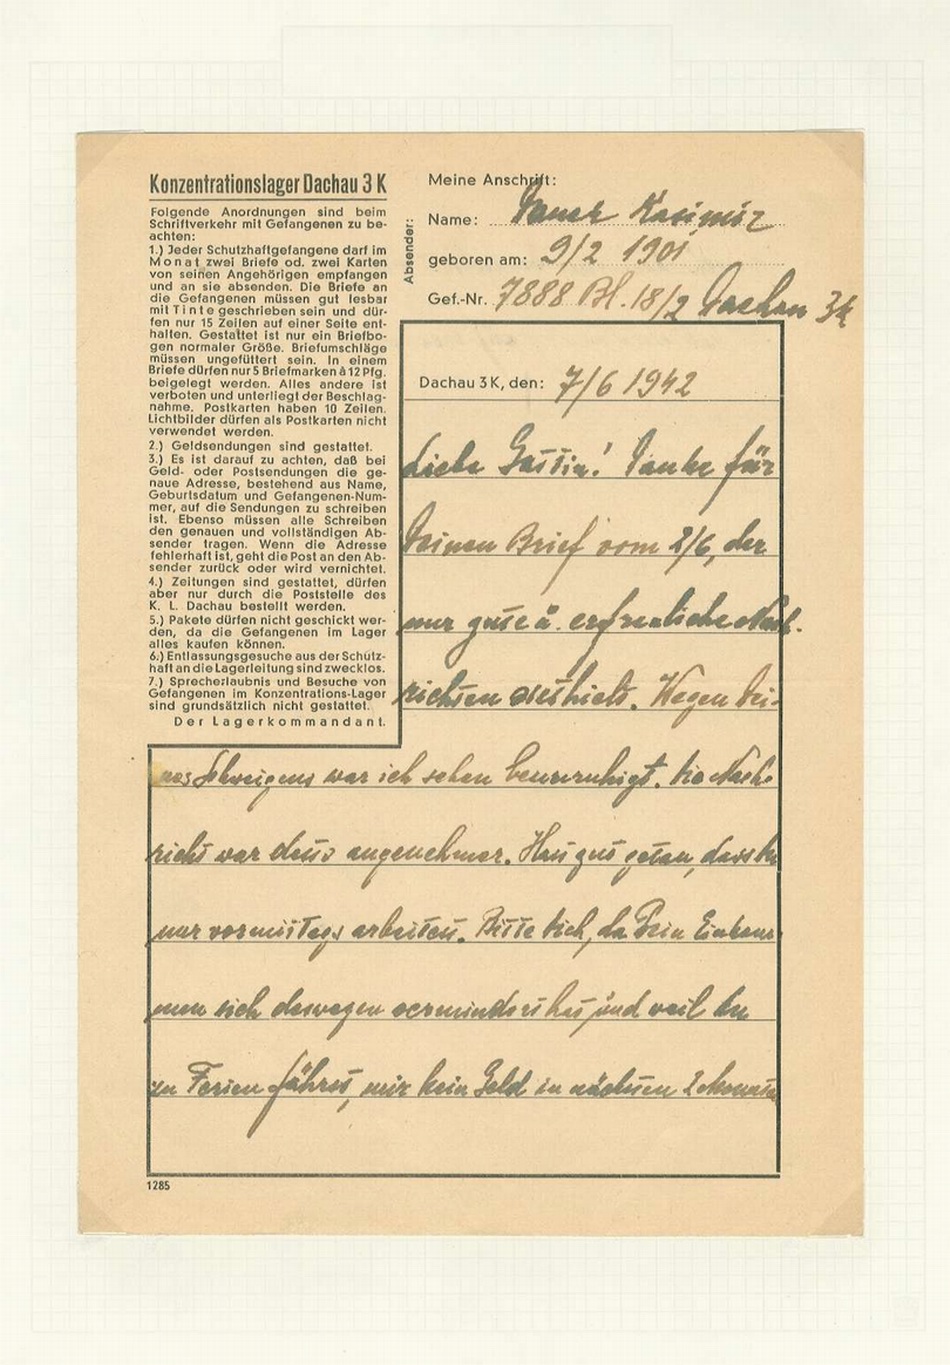 Konzentrationslager Dachau 3 K
Folgende Anordnungen sind beim
Schriftverkehr mit Gefangenen zu be-
achten:
1.) Jeder Schutzhaftgefangene darf im
Monat zwei Briefe od. zwei Karten
von seinen Angehörigen empfangen
und an sie absenden. Die Briefe an
die Gefangenen müssen gut lesbar
mit Tinte geschrieben sein und dür-
fen nur 15 Zeilen auf einer Seite ent-
halten. Gestattet ist nur ein Briefbo-
gen normaler Größe. Briefumschläge
müssen ungefüttert sein. In einem
Briefe dürfen nur 5 Briefmarken à 12 Pfg.
beigelegt werden. Alles andere ist
verboten und unterliegt der Beschlag-
nahme. Postkarten haben 10 Zeilen.
Lichtbilder dürfen als Postkarten nicht
verwendet werden.
2.) Geldsendungen sind gestattet.
3.) Es ist darauf zu achten, daß bei
Geld- oder Postsendungen die ge-
naue Adresse, bestehend aus Name,
Geburtsdatum und Gefangenen-Num-
mer, auf die Sendungen zu schreiben
ist. Ebenso müssen alle Schreiben
den genauen und vollständigen Ab-
sender tragen. Wenn die Adresse
fehlerhaft ist, geht die Post an den Ab-
sender zurück oder wird vernichtet.
4.) Zeitungen sind gestattet, dürfen
aber nur durch die Poststelle des
K. L. Dachau bestellt werden.
5.) Pakete dürfen nicht geschickt wer-
den, da die Gefangenen im Lager
alles kaufen können.
6.) Entlassungsgesuche aus der Schutz-
haft an die Lagerleitung sind zwecklos.
7.) Sprecherlaubnis und Besuche von
Gefangenen im Konzentrations-Lager
sind grundsätzlich nicht gestattet.
Der Lagerkommandant.
Absender:
Meine Anschrift:
Name: Kasimir
geboren am: 9/2 1901
Gef.-Nr. 7888 Bl. 18/2 Dachau 3K
Dachau 3 K, den: 7/6 1942
Liebe Gattin! Danke für
Deinen Brief vom 2/6, der
nur gute u. erfreuliche Nach-
richten enthielt. Wegen Dei-
nes Schweigens war ich schon beunruhigt. Die Nach-
richt war desto angenehmer. Hast gut getan, dass Du
nur vormittags arbeitest. Bitte Dich, da Dein Einkom-
men sich deswegen vermindert hat und weil Du
in Ferien fährst, mir kein Geld in nächsten 2 Monaten
1285